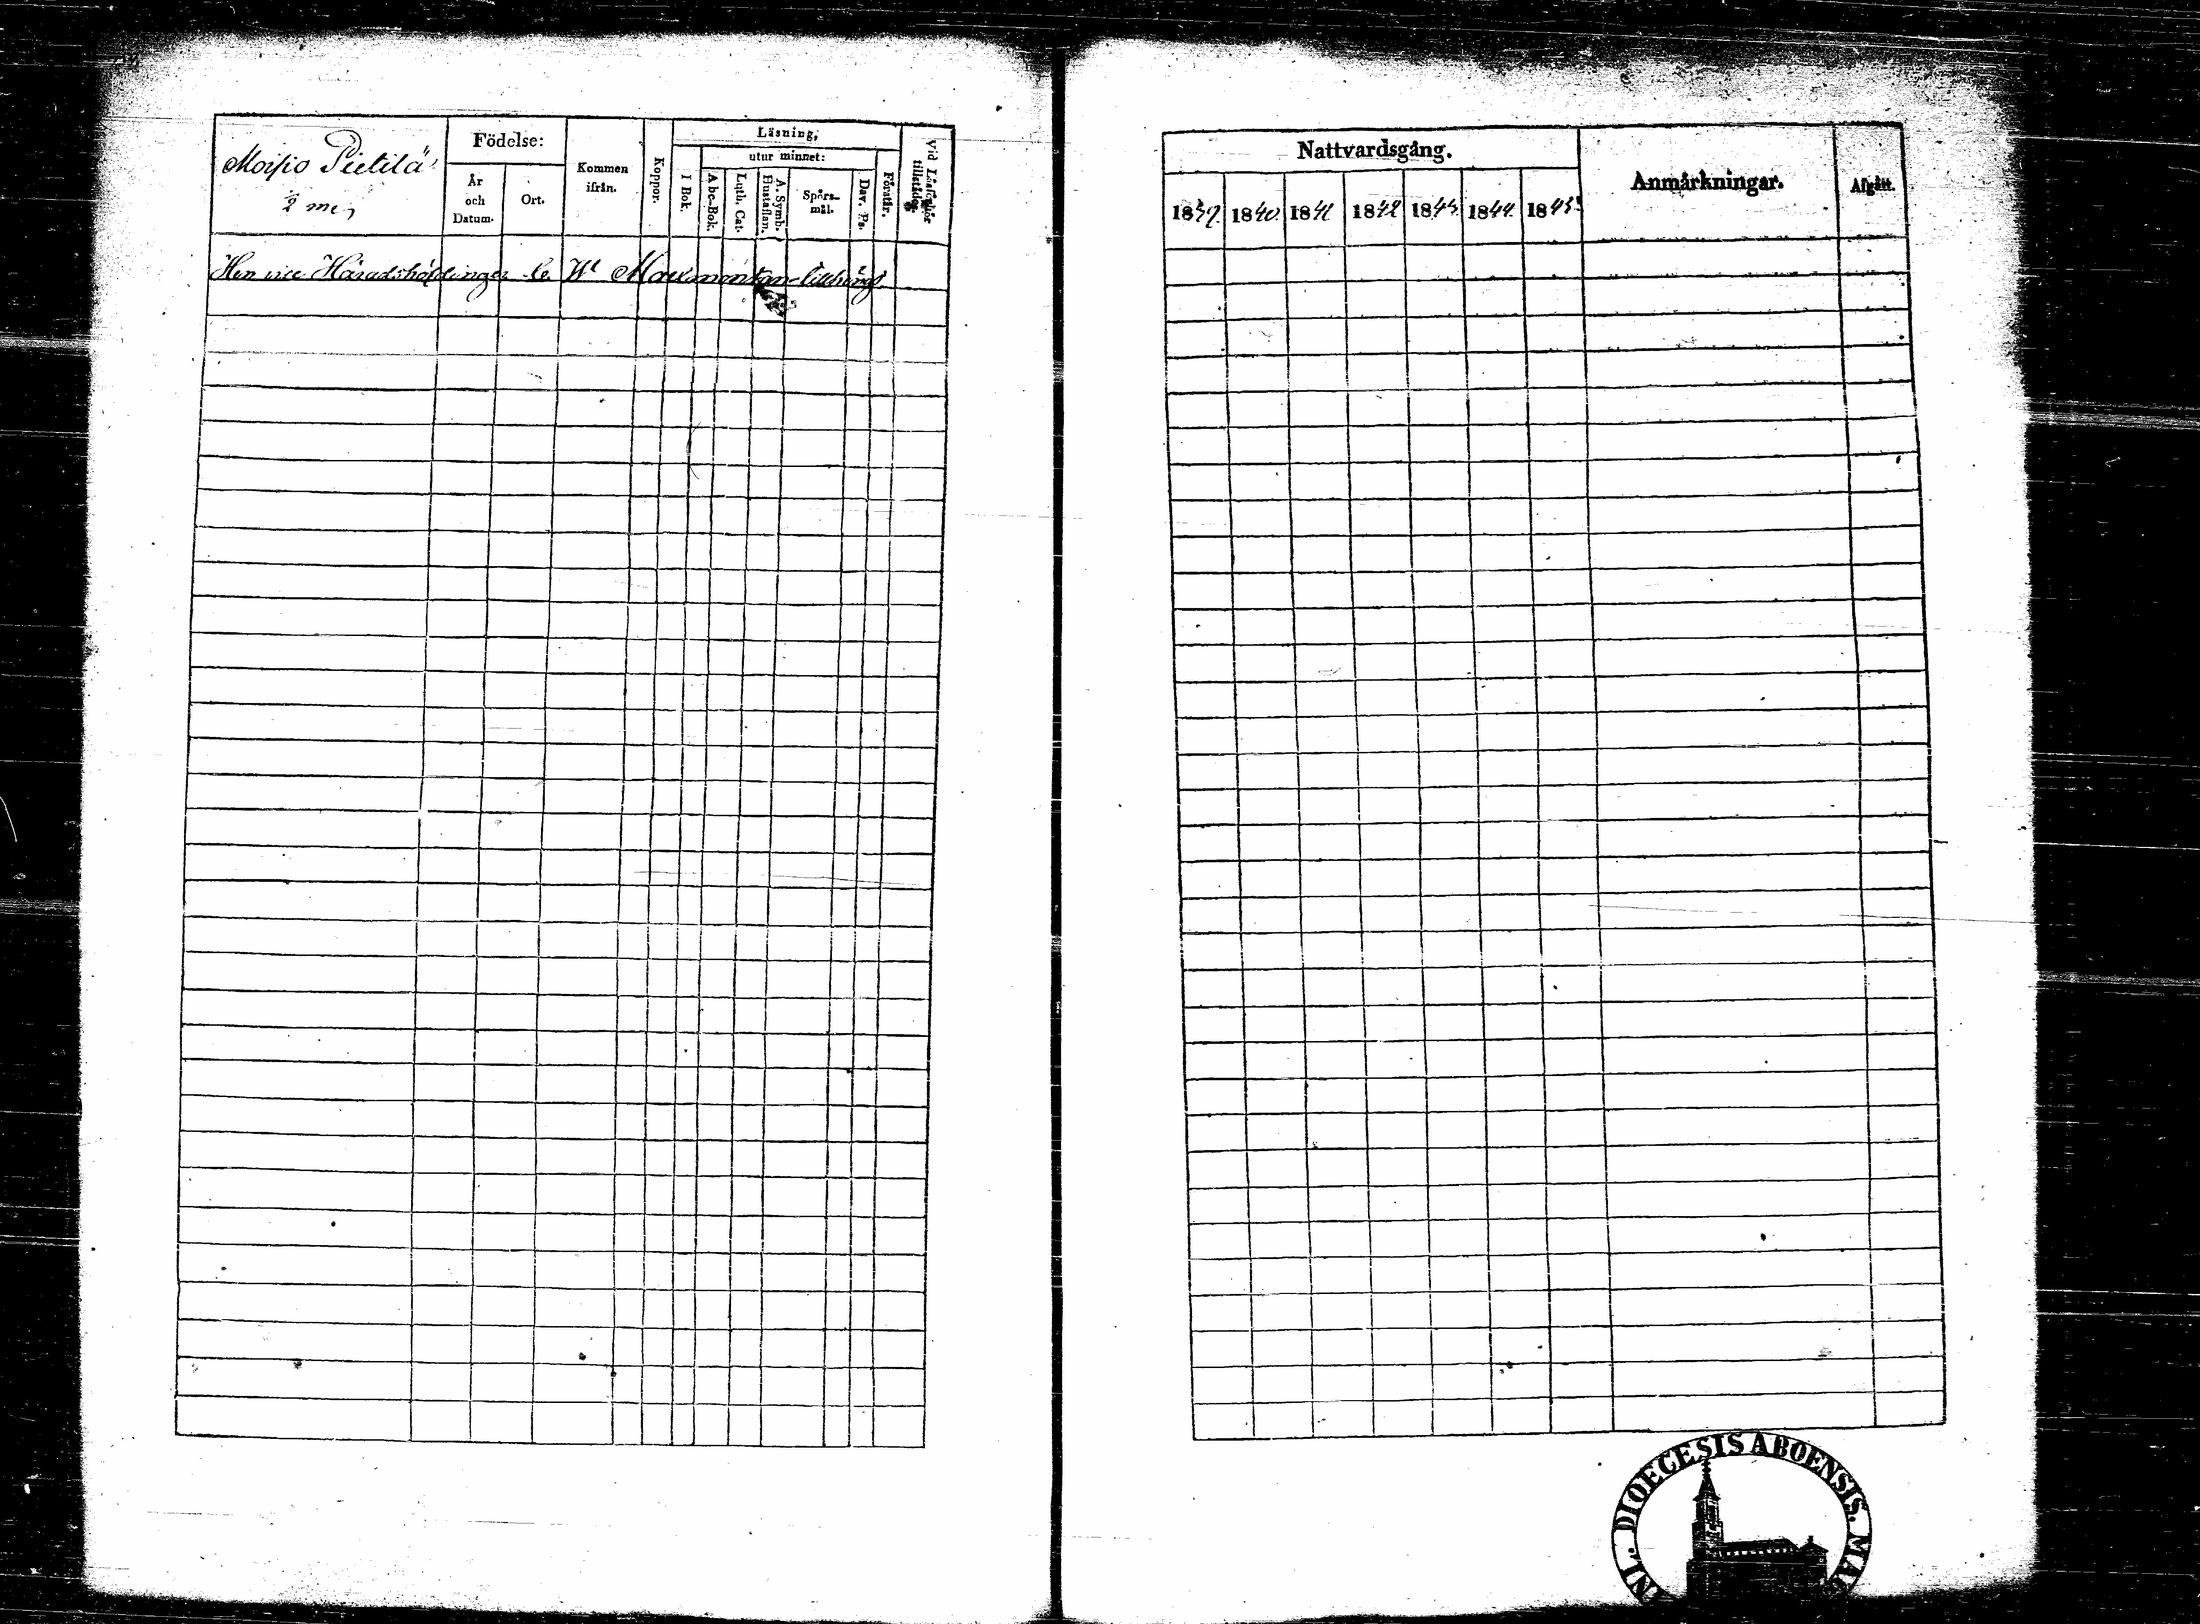 Moisio Pietilä
2 me
Födelse:
År
och
Datum.
Ort.
Kommen
ifrån.
Koppor.
Läsning,
I Bok.
utur minnet:
A be-Bok.
Luth. Cat.
A. Symb.
Hustaflan.
Spörs-
mål.
Dav. Ps.
Förstår.
Vid Läsförhör
tillstädes.
Häradshöfdingen W. Maexmontan tillhörigt
Nattvardsgång.
1839. 1840. 1841 1842 1843. 1844. 1845.
Anmärkningar.
Afgått.
DIOECESIS ABOENSIS.